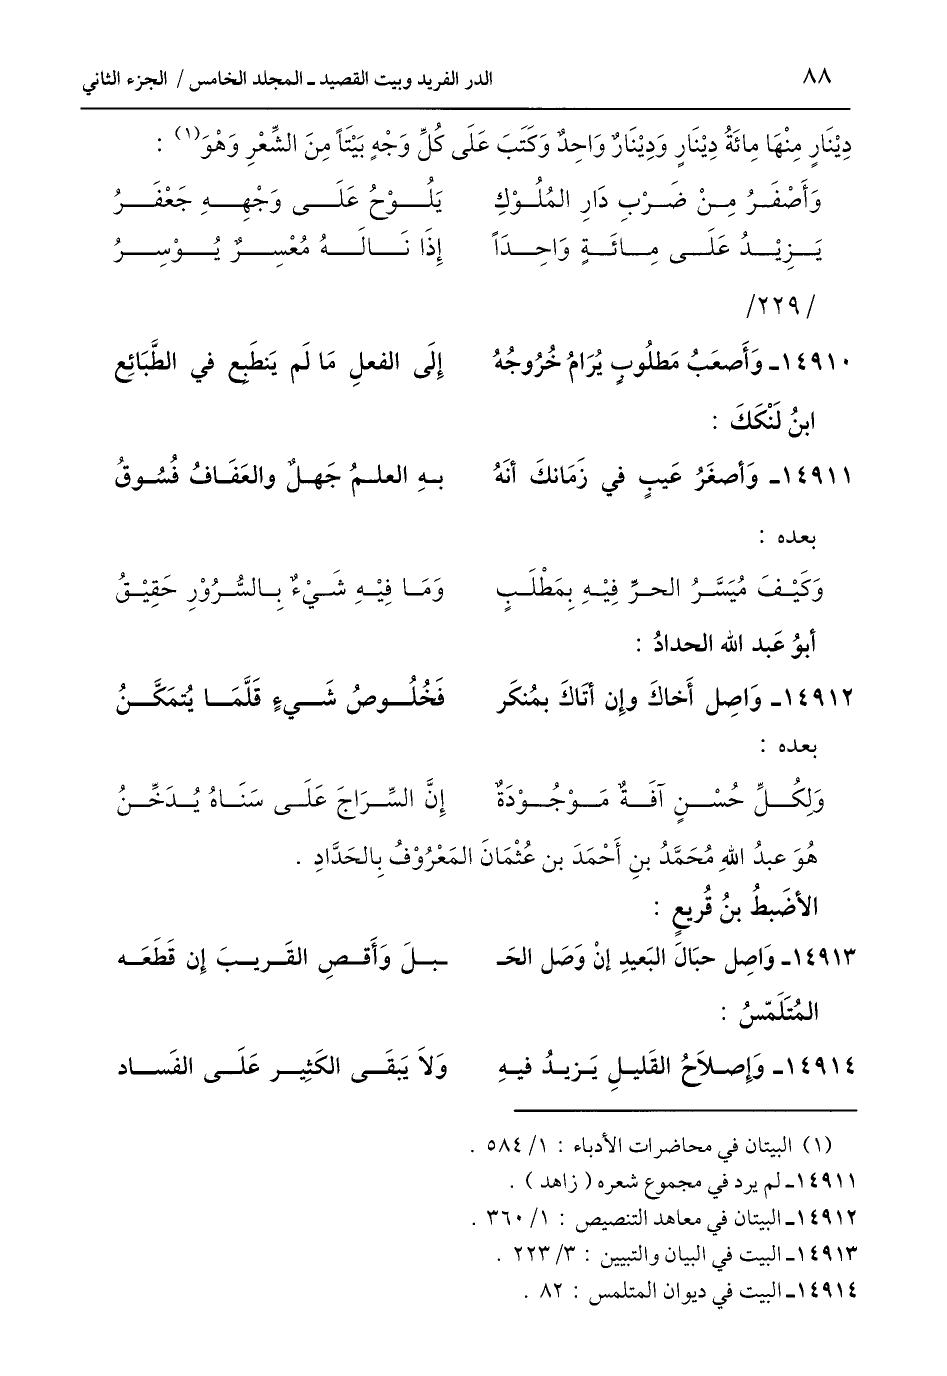 ٨٨ الدر الفريد وبيت القصيد ـ المجلد الخامس / الجزء الثاني
دِيْنَارٍ مِنْهَا مِائَةُ دِيْنَارٍ وَدِيْنَارٌ وَاحِدٌ وَكَتَبَ عَلَى كُلِّ وَجْهٍ بَيْتَاً مِنَ الشِّعْرِ وَهْوَ(١) :
وَأَصْفَـرُ مِـنْ ضَـرْبِ دَارِ المُلُـوْكِ يَلُـوْحُ عَلَـى وَجْهِـهِ جَعْفَـرُ
يَـزِيْـدُ عَلَـى مِـائَـةٍ وَاحِـدَاً إِذَا نَـالَـهُ مُعْسِـرٌ يُـوْسِـرُ
/٢٢٩/
١٤٩١٠ـ وَأَصعَبُ مَطلُوبٍ يُرَامُ خُرُوجُهُ إِلَى الفعلِ مَا لَم يَنطَبِع في الطَّبَائِعِ
ابنُ لَنْكَكَ :
١٤٩١١ـ وَأَصغَرُ عَيبٍ في زَمَانكَ أنَهُ بـهِ العلـمُ جَهلٌ والعَفَـافُ فُسُوقُ
بعده :
وَكَيْـفَ مُيَسَّـرُ الحـرِّ فِيْـهِ بِمَطْلَـبٍ وَمَـا فِيْـهِ شَـيْءٌ بِـالسُّـرُوْرِ حَقِيْـقُ
أبوُ عَبد الله الحدادُ :
١٤٩١٢ـ وَاصِل أَخاكَ وإن أتَاكَ بمُنكَر فَخُلُـوصُ شَـيءٍ قَلَّمَـا يُتمَكَّـنُ
بعده :
وَلِكُـلِّ حُسْـنٍ آفَـةٌ مَـوْجُـوْدَةٌ إِنَّ السِّـرَاجَ عَلَـى سَنَـاهُ يُـدَخِّـنُ
هُوَ عبدُ اللهِ مُحَمَّدُ بنِ أَحْمَدَ بن عُثْمَانَ المَعْرُوْفُ بِالحَدَّادِ .
الأضَبطُ بنُ قُريعٍ :
١٤٩١٣ـ وَاصِل حبَالَ البَعيدِ إنْ وَصَل الحَـ ـبـلَ وَأَقـصِ القَـريـبَ إن قَطَعَـه
المُتَلَمّسُ :
١٤٩١٤ـ وَإِصـلاَحُ القَليلِ يَـزيدُ فيهِ وَلاَ يَبقَـى الكَثِيـر عَلَـى الفَسـاد
(١) البيتان في محاضرات الأدباء : ١/ ٥٨٤ .
١٤٩١١ـ لم يرد في مجموع شعره ( زاهد ) .
١٤٩١٢ـ البيتان في معاهد التنصيص : ١/ ٣٦٠ .
١٤٩١٣ـ البيت في البيان والتبيين : ٣/ ٢٢٣ .
١٤٩١٤ـ البيت في ديوان المتلمس : ٨٢ .